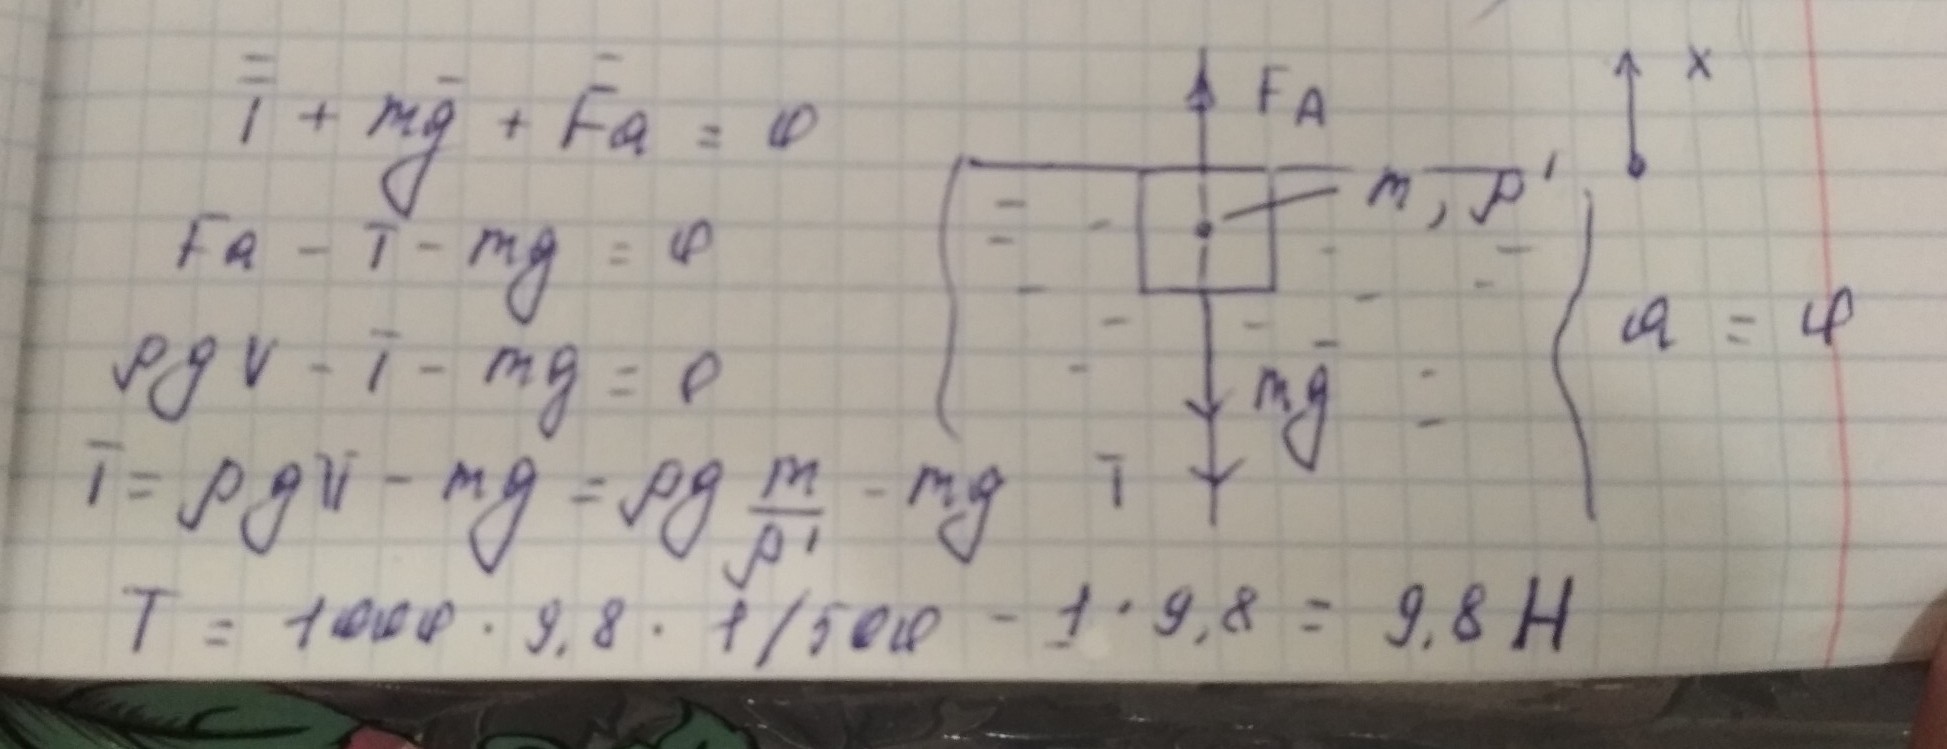 T̄ + mḡ + F̄a = 0
Fa - T - mg = 0
ρgV - T - mg = 0
T = ρgV - mg = ρg m/ρ' - mg
T = 1000 · 9,8 · 1/500 - 1 · 9,8 = 9,8 Н
FA
x
m, ρ'
a = 0
mḡ
T